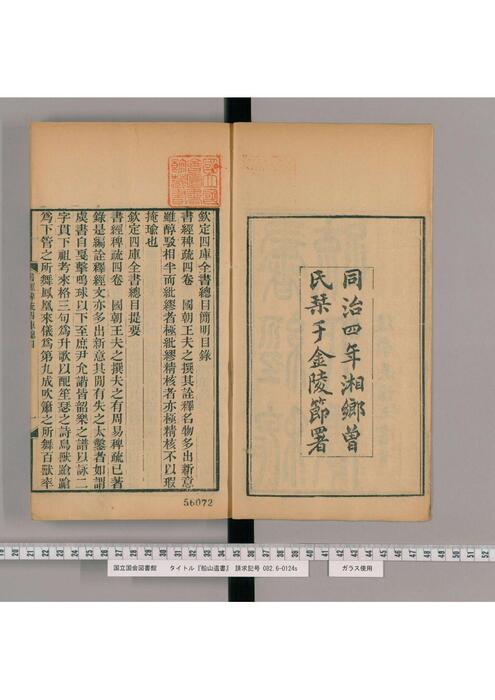 同治四年湘鄉曾
氏栞于金陵節署
欽定四庫全書總目簡明目錄
書經稗疏四卷　國朝王夫之撰其詮釋名物多出新意
雖醇駁相半而紕繆者極紕繆精核者亦極精核不以瑕
掩瑜也
欽定四庫全書總目提要
書經稗疏四卷　國朝王夫之撰夫之有周易稗疏已著
錄是編詮釋經文亦多出新意其閒有失之太鑿者如謂
虞書自戛擊鳴球以下至庶尹允諧皆韶樂之譜以詠二
字貫下祖考來格三句爲升歌以配笙瑟之詩鳥獸蹌蹌
爲下管之所舞鳳凰來儀爲第九成吹簫之所舞百獸率
56072
19 20 21 22 23 24 25 26 27 28 29 30 31 32 33 34 35 36 37 38 39 40 41 42 43 44 45 46 47 48 49 50 51 52
国立国会図書館　タイトル『船山遺書』　請求記号 082.6-0124s　ガラス使用